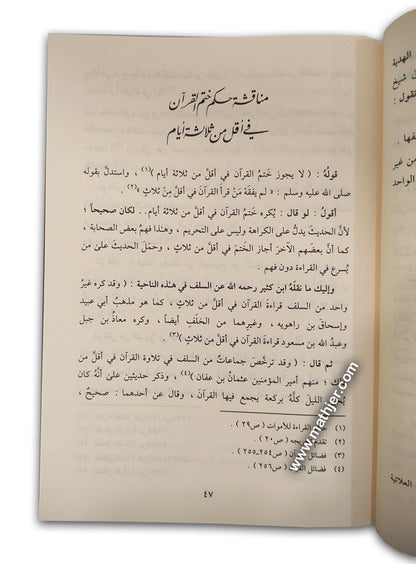 مناقشة حكم ختم القرآن
في أقل من ثلاثة أيام
قولُهُ : ( لا يجوز ختمُ القرآن في أقلَّ من ثلاثة أيام )(١) ، واستدلَّ بقوله
صلى الله عليه وسلم : « لم يفقَهْ مَنْ قرأَ القرآن في أقلَّ مِنْ ثلاثٍ »(٢) .
أقولُ : لو قال : يُكره ختمُ القرآن في أقلَّ من ثلاثة أيام .. لكان صحيحاً ؛
لأنَّ الحديثَ يدلُّ على الكراهة وليس على التحريم ، وهذا فهمُ بعض الصحابة ،
كما أنَّ بعضَهم الآخر أجاز الختمَ في أقلَّ من ثلاثٍ ، وحمَل الحديث على من
يُسرع في القراءة دون فهم .
وإليك ما نقلَهُ ابن كثير رحمه الله عن السلف في هذه الناحية : ( وقد كره غيرُ
واحد من السلف قراءةَ القرآن في أقلَّ من ثلاثٍ ، كما هو مذهبُ أبي عبيد
وإسحاق بن راهويه ، وغيرهما من الخلَف أيضاً ، وكره معاذُ بن جبل
وعبدُ الله بن مسعود قراءةَ القرآن في أقلَّ من ثلاثٍ )(٣) .
ثم قال : ( وقد ترخَّصَ جماعاتٌ من السلف في تلاوة القرآن في أقلَّ من
ذلك ؛ منهم أمير المؤمنين عثمانُ بن عفان )(٤) ، وذكر حديثين على أنَّهُ كان
يحيي الليلَ كلَّهُ بركعة يجمع فيها القرآنَ ، وقال عن أحدهما : صحيحٌ ،
(١) القراءة للأموات ( ص٢٩ ) .
(٢) تقدم تخريجه ( ص٢٠ ) .
(٣) فضائل القرآن ( ص٢٥٤ـ٢٥٥ ) .
(٤) فضائل القرآن ( ص٢٥٦ ) .
٤٧
الهدية
شيخ
تقول :
من غير
الواحد
العلائية
www.mathjer.com